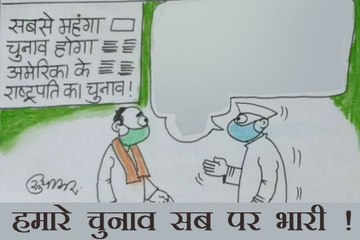 सबसे महंगा
चुनाव होगा
अमेरिका के
राष्ट्रपति का चुनाव!
हमारे चुनाव सब पर भारी !